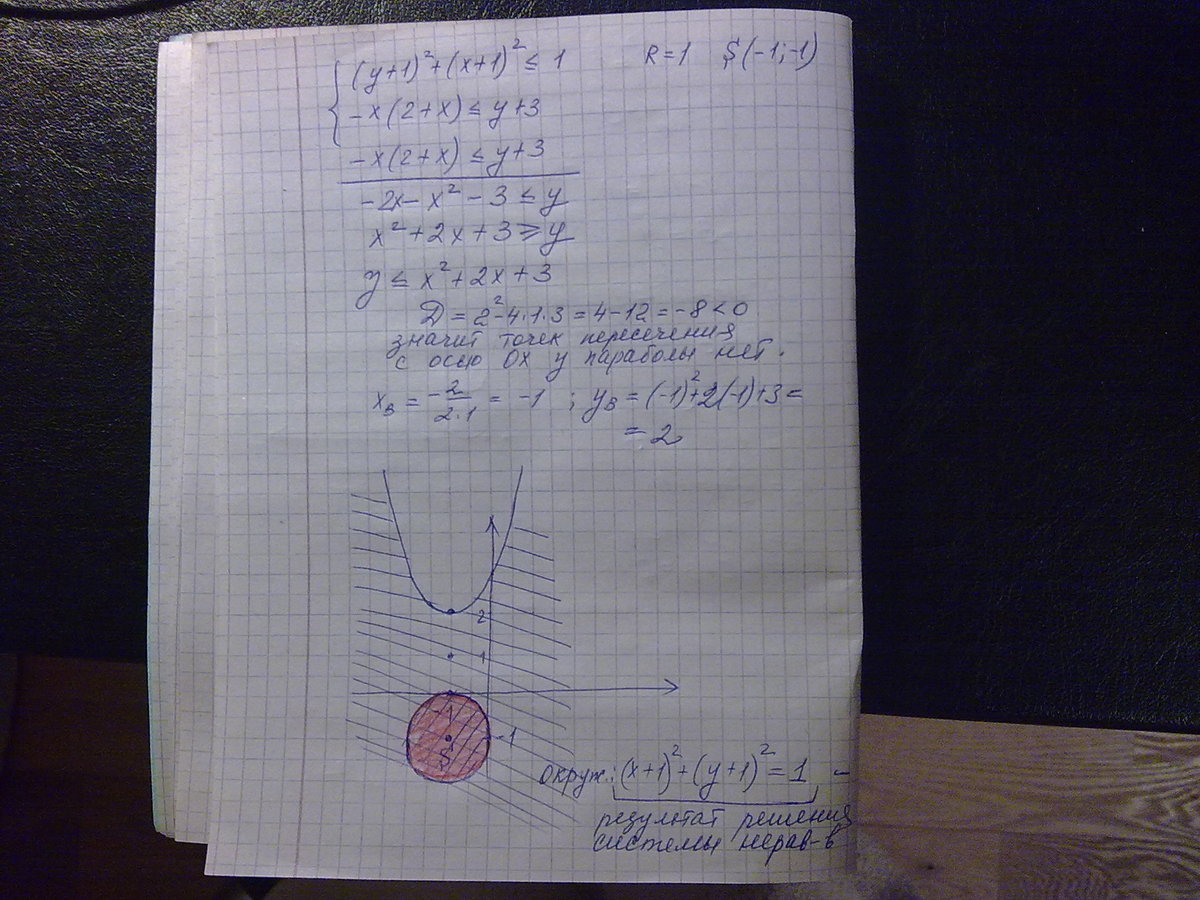 (y+1)²+(x+1)² ≤ 1 R=1 S(-1;-1)
-x(2+x) ≤ y+3
-x(2+x) ≤ y+3
-2x-x²-3 ≤ y
x²+2x+3 ≥ y
y ≤ x²+2x+3
D = 2²-4·1·3 = 4-12 = -8 < 0
значит точек пересечения
с осью Ox у параболы нет.
x_в = -2/2·1 = -1 ; y_в = (-1)²+2(-1)+3 =
= 2
2
1
-1
-1
S
Окруж.: (x+1)²+(y+1)² = 1 -
результат решения
системы нерав-в